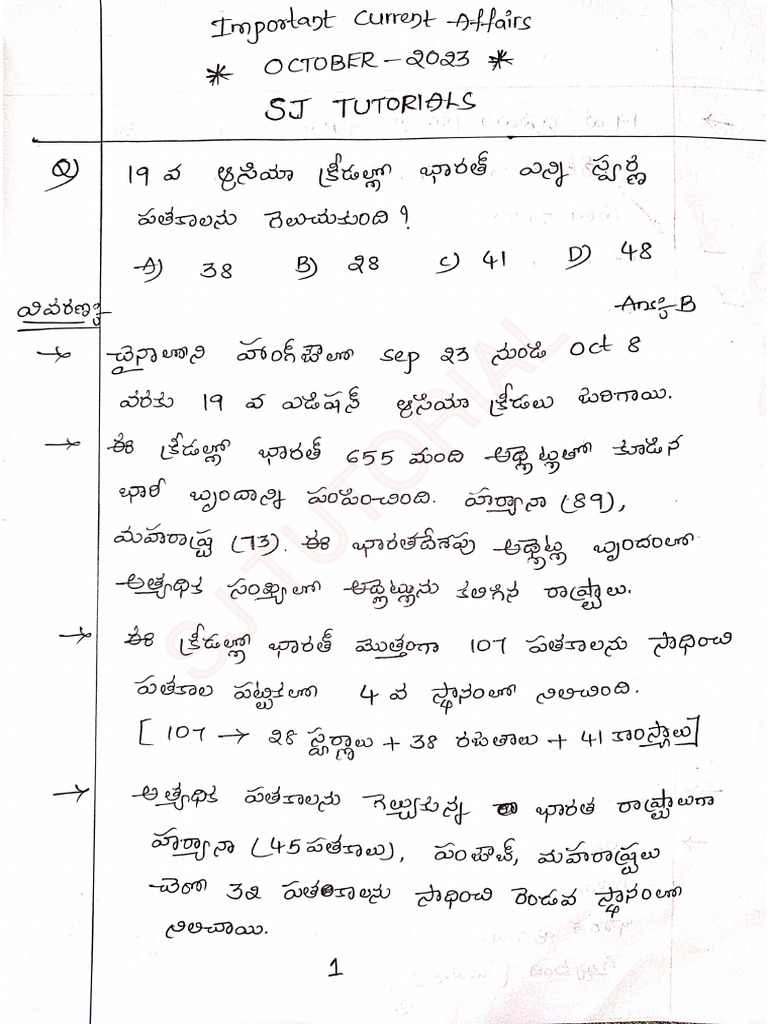 Important Current Affairs
* OCTOBER - 2023 *
SJ TUTORIALS
Q) 19 వ ఆసియా క్రీడల్లో భారత్ ఎన్ని స్వర్ణ
పతకాలను గెలుచుకుంది?
A) 38 B) 28 C) 41 D) 48
వివరణ:- Ans:- B
→ చైనాలోని హాంగ్‌జౌలో sep 23 నుండి oct 8
వరకు 19 వ ఎడిషన్ ఆసియా క్రీడలు జరిగాయి.
→ ఈ క్రీడల్లో భారత్ 655 మంది అథ్లెట్లతో కూడిన
భారీ బృందాన్ని పంపించింది. హర్యానా (89),
మహారాష్ట్ర (73). ఈ భారతదేశపు అథ్లెట్ల బృందంలో
అత్యధిక సంఖ్యలో అథ్లెట్లను కలిగిన రాష్ట్రాలు.
→ ఈ క్రీడల్లో భారత్ మొత్తంగా 107 పతకాలను సాధించి
పతకాల పట్టికలో 4 వ స్థానంలో నిలిచింది.
[107 → 28 స్వర్ణాలు + 38 రజతాలు + 41 కాంస్యాలు]
→ అత్యధిక పతకాలను గెల్చుకున్న భారత రాష్ట్రాలుగా
హర్యానా (45 పతకాలు), పంజాబ్, మహారాష్ట్రలు
చెరో 32 పతకాలను సాధించి రెండవ స్థానంలో
నిలిచాయి.
1
SJ TUTORIAL